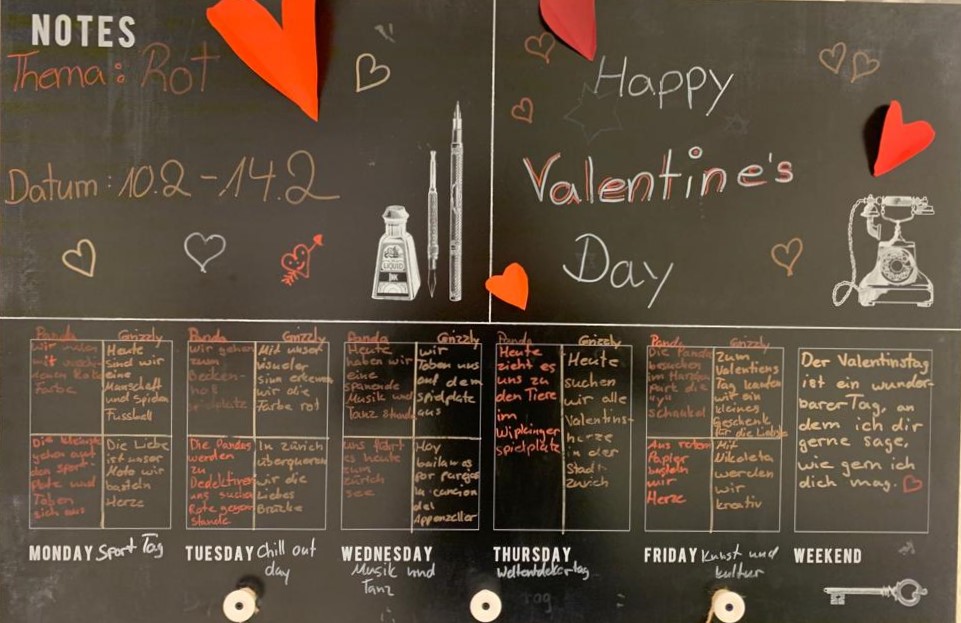 NOTES
Thema: Rot
Datum: 10.2 - 14.2
Happy
Valentine's
Day
LIQUID
INK
Panda
Wir malen
mit
neuen
Farbe
Grizzly
Heute
sind wir
eine
Manschaft
und spielen
Fussball
Die
gehen auf
den Sport-
platz und
Toben
sich aus
Die Liebe
ist unser
Moto wir
basteln
Herze
MONDAY Sport Tag
Panda
Wir gehen
zum
Becken-
hof
spielplatz
Grizzly
Mit unser
sinn erkennen
wir die
Farbe rot
Die Pandas
werden
zu
Dedektiven
und suchen
Rote gegen-
stände
In Zürich
überqueren
wir die
Liebes
Brücke
TUESDAY Chill out
day
Panda
Heute
haben wir
eine
spanende
Musik und
Tanz stunde
Grizzly
wir
Toben uns
auf dem
spielplatz
aus
uns führt
es heute
zum
Zürich
see
Hoy
bailamos
por parejas
la cancion
del
Appenzeller
WEDNESDAY
Musik und
Tanz
Panda
Heute
zieht es
uns zu
den Tiere
im
Wipkinger
spielplatz
Grizzly
Heute
suchen
wir alle
Valentins-
herze
in der
Stadt
Zürich
THURSDAY
Weltentdeckertag
Panda
Die Panda
besuchen
im
die
schaukel
Grizzly
Zum
Valentiens
Tag
wir ein
kleines
Geschenk
für die Liebste
Aus rotem
Papier
basteln
wir
Herze
Mit
Nikoleta
werden
wir
kreativ
FRIDAY Kunst und
kultur
Der Valentinstag
ist ein wunder-
barer Tag, an
dem ich dir
gerne sage,
wie gern ich
dich mag.
WEEKEND